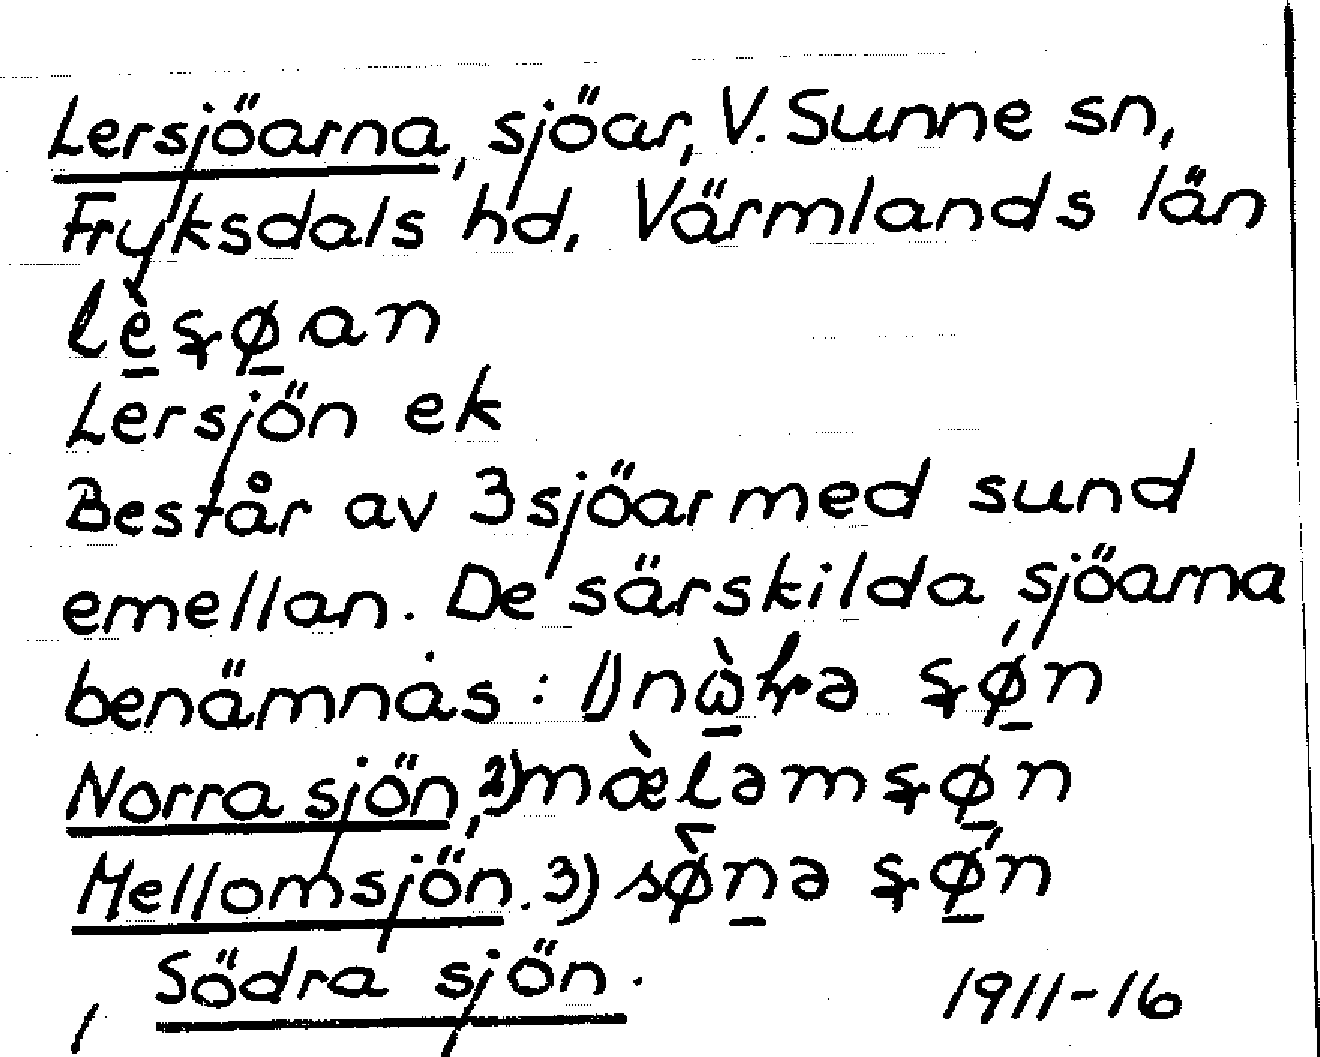 Lersjöarna, sjöar, V. Sunne sn,
Fryksdals hd, Värmlands län
Lersjön ek
Består av 3 sjöar med sund
emellan. De särskilda sjöarna
benämnas : 1)
Norra sjön, 2)
Mellomsjön. 3)
Södra sjön.
1911-16